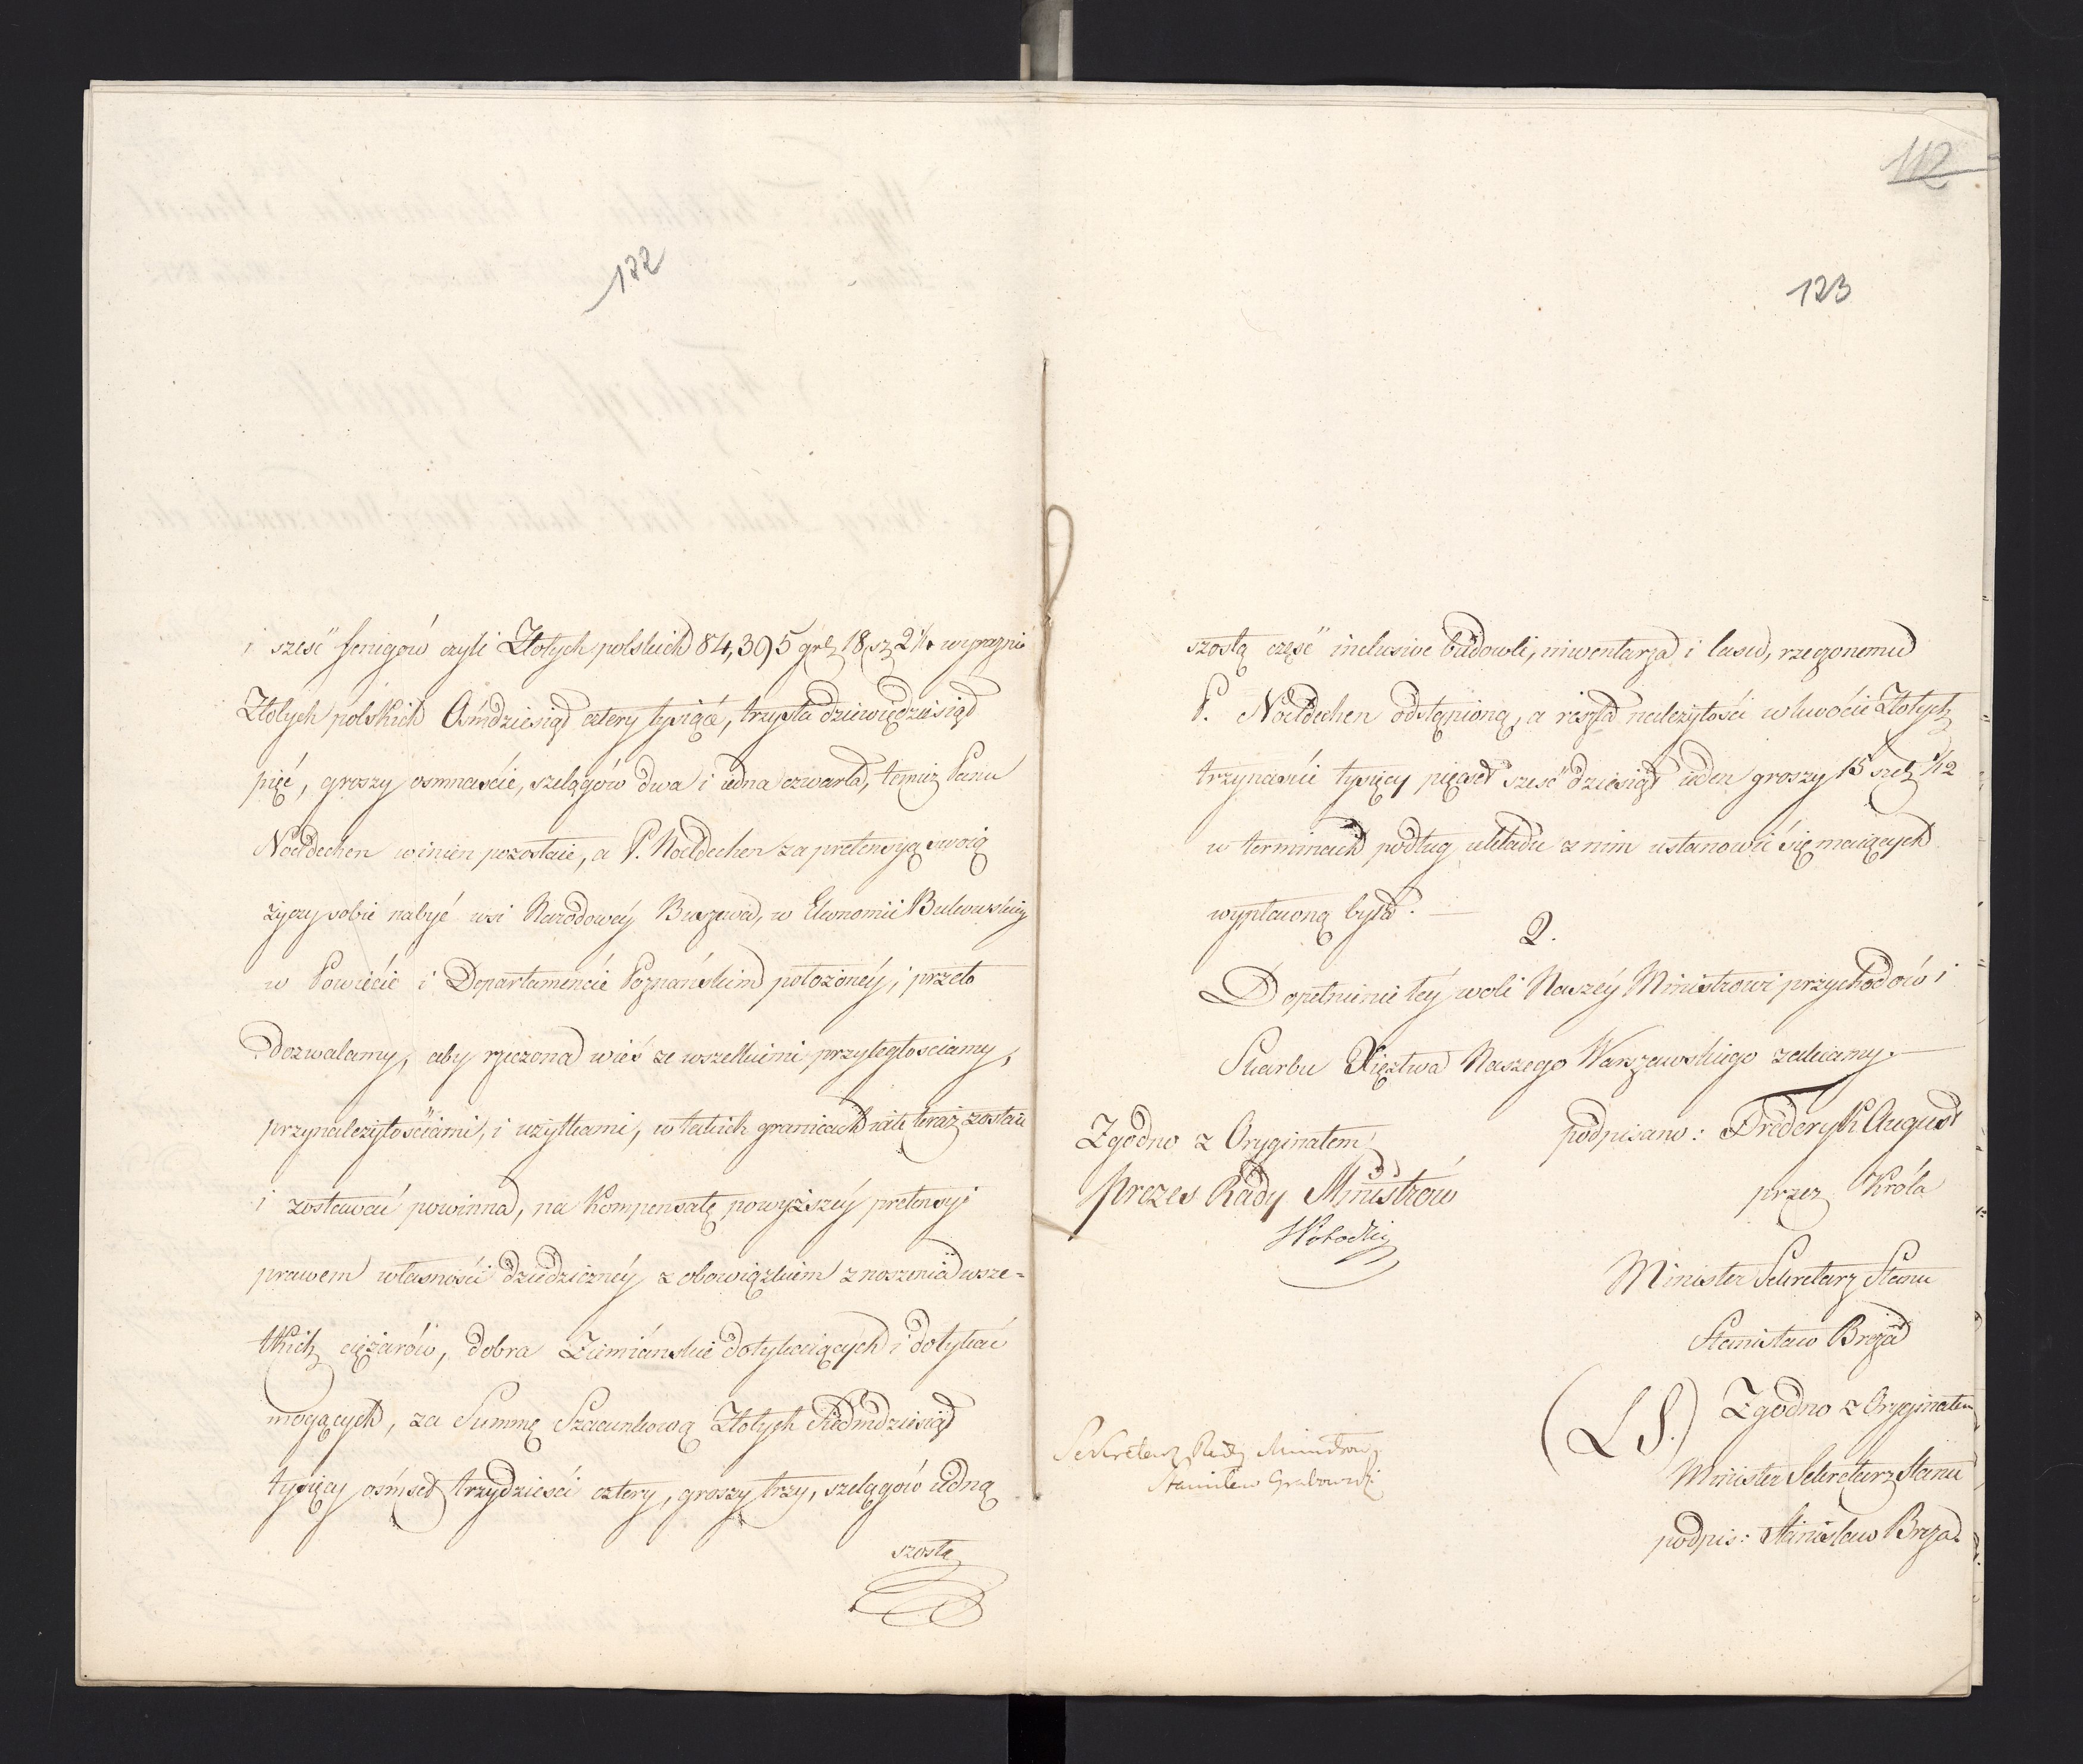 122
i sześć fenigów czyli Złotych polskich 84,395 grl 18, sz 2 1/4 wyraznie
Złotych polskich Ośmdziesiąt cztery tysiące, trzysta dziewięćdziesiąt
pięć, groszy osmnaście, szelągów dwa i iedna czwarta, temuż Panu
Noeldechen winien pozostaie, a P. Noeldechen za pretensyą swoią
życzy sobie nabyć wsi Narodowey Buszewa, w Ekonomii Bukowskiey
w Powiecie i Departamencie Poznańskim położoney, przeto
Dozwalamy, aby rzeczona wieś ze wszelkiemi przyległosciamy,
przynależytościami, i użytkami, w takich granicach iak teraz zostaie
i zostawać powinna, na kompensatę powyższey pretensyi
prawem własności dziedziczney z obowiązkiem znoszenia wsze=
lkich ciężarów, dobra Ziemiańskie dotykaiących i dotykać
mogących, za Summę Szacunkową Złotych Siedmdziesiąt
tysięcy ośmset trzydzieści cztery, groszy trzy, szelągów iedną
szostą
112
123
szostą część inclusive budowli, inwentarza i lasu, rzeczonemu
P. Noeldechen odstąpioną, a reszta należytości w kwocie Złotych
trzynaście tysięcy pięcset sześćdziesiąt ieden groszy 15 szel: 1/12
w terminach podług układu z nim ustanowić się maiących
wypłaconą była.
2.
Dopełnienie tey woli Naszey Ministrowi przychodów i
Skarbu Xięztwa Naszego Warszawskiego zalecamy.
Zgodno z Oryginałem
Prezes Rady Ministrów
podpisano: Frederyk August
przez Króla
Minister Sekretarz Stanu
Stanisław Breza
(L S.) Zgodno z Oryginałem
Minister Sekretarz Stanu
podpis: Stanisław Breza
Sekretarz Rady Ministrow
Stanisław Grabowski